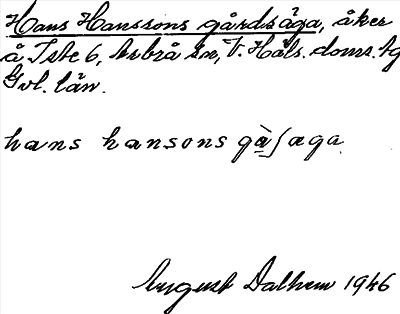 Hans Hanssons gårdsäga, åker
å Iste 6, Arbrå sn, V. Häls. doms. tg
Gvl. län.
hans hansons gàʃaga.
August Dalhem 1946